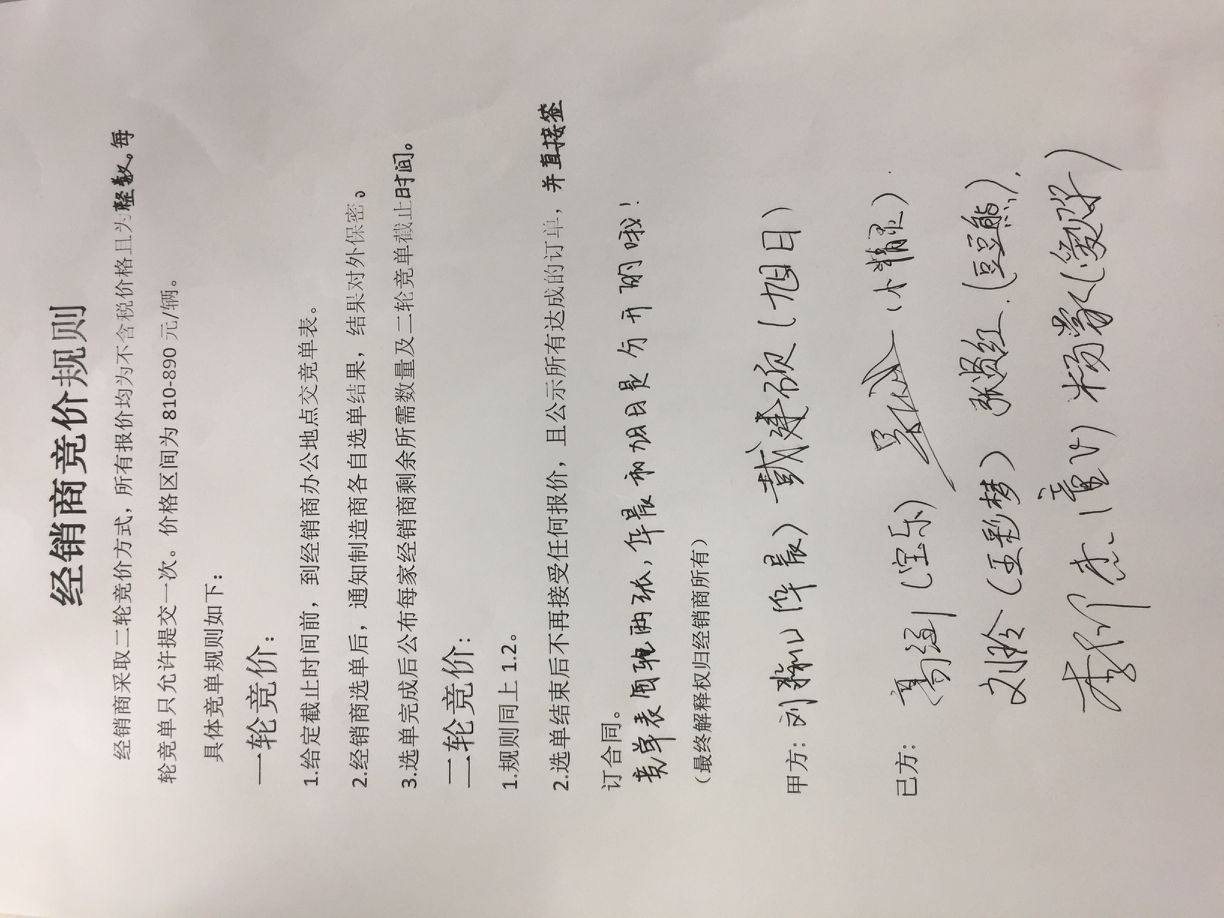 经销商竞价规则
经销商采取二轮竞价方式，所有报价均为不含税价格且为整数。每
轮竞单只允许提交一次。价格区间为810-890元/辆。
具体竞单规则如下：
一轮竞价：
1.给定截止时间前，到经销商办公地点交竞单表。
2.经销商选单后，通知制造商各自选单结果，结果对外保密。
3.选单完成后公布每家经销商剩余所需数量及二轮竞单截止时间。
二轮竞价：
1.规则同上1.2。
2.选单结束后不再接受任何报价，且公示所有达成的订单，并直接签
订合同。
竞单表 两张，华晨和旭日是分开的哦！
（最终解释权归经销商所有）
甲方：刘 山（华晨） 戴建硕（旭日）
已方： （宝乐） （小精灵）.
刘玲（王彩梦） 张 红.（豆豆熊）.
（童 ） 杨蒙（爱 ）